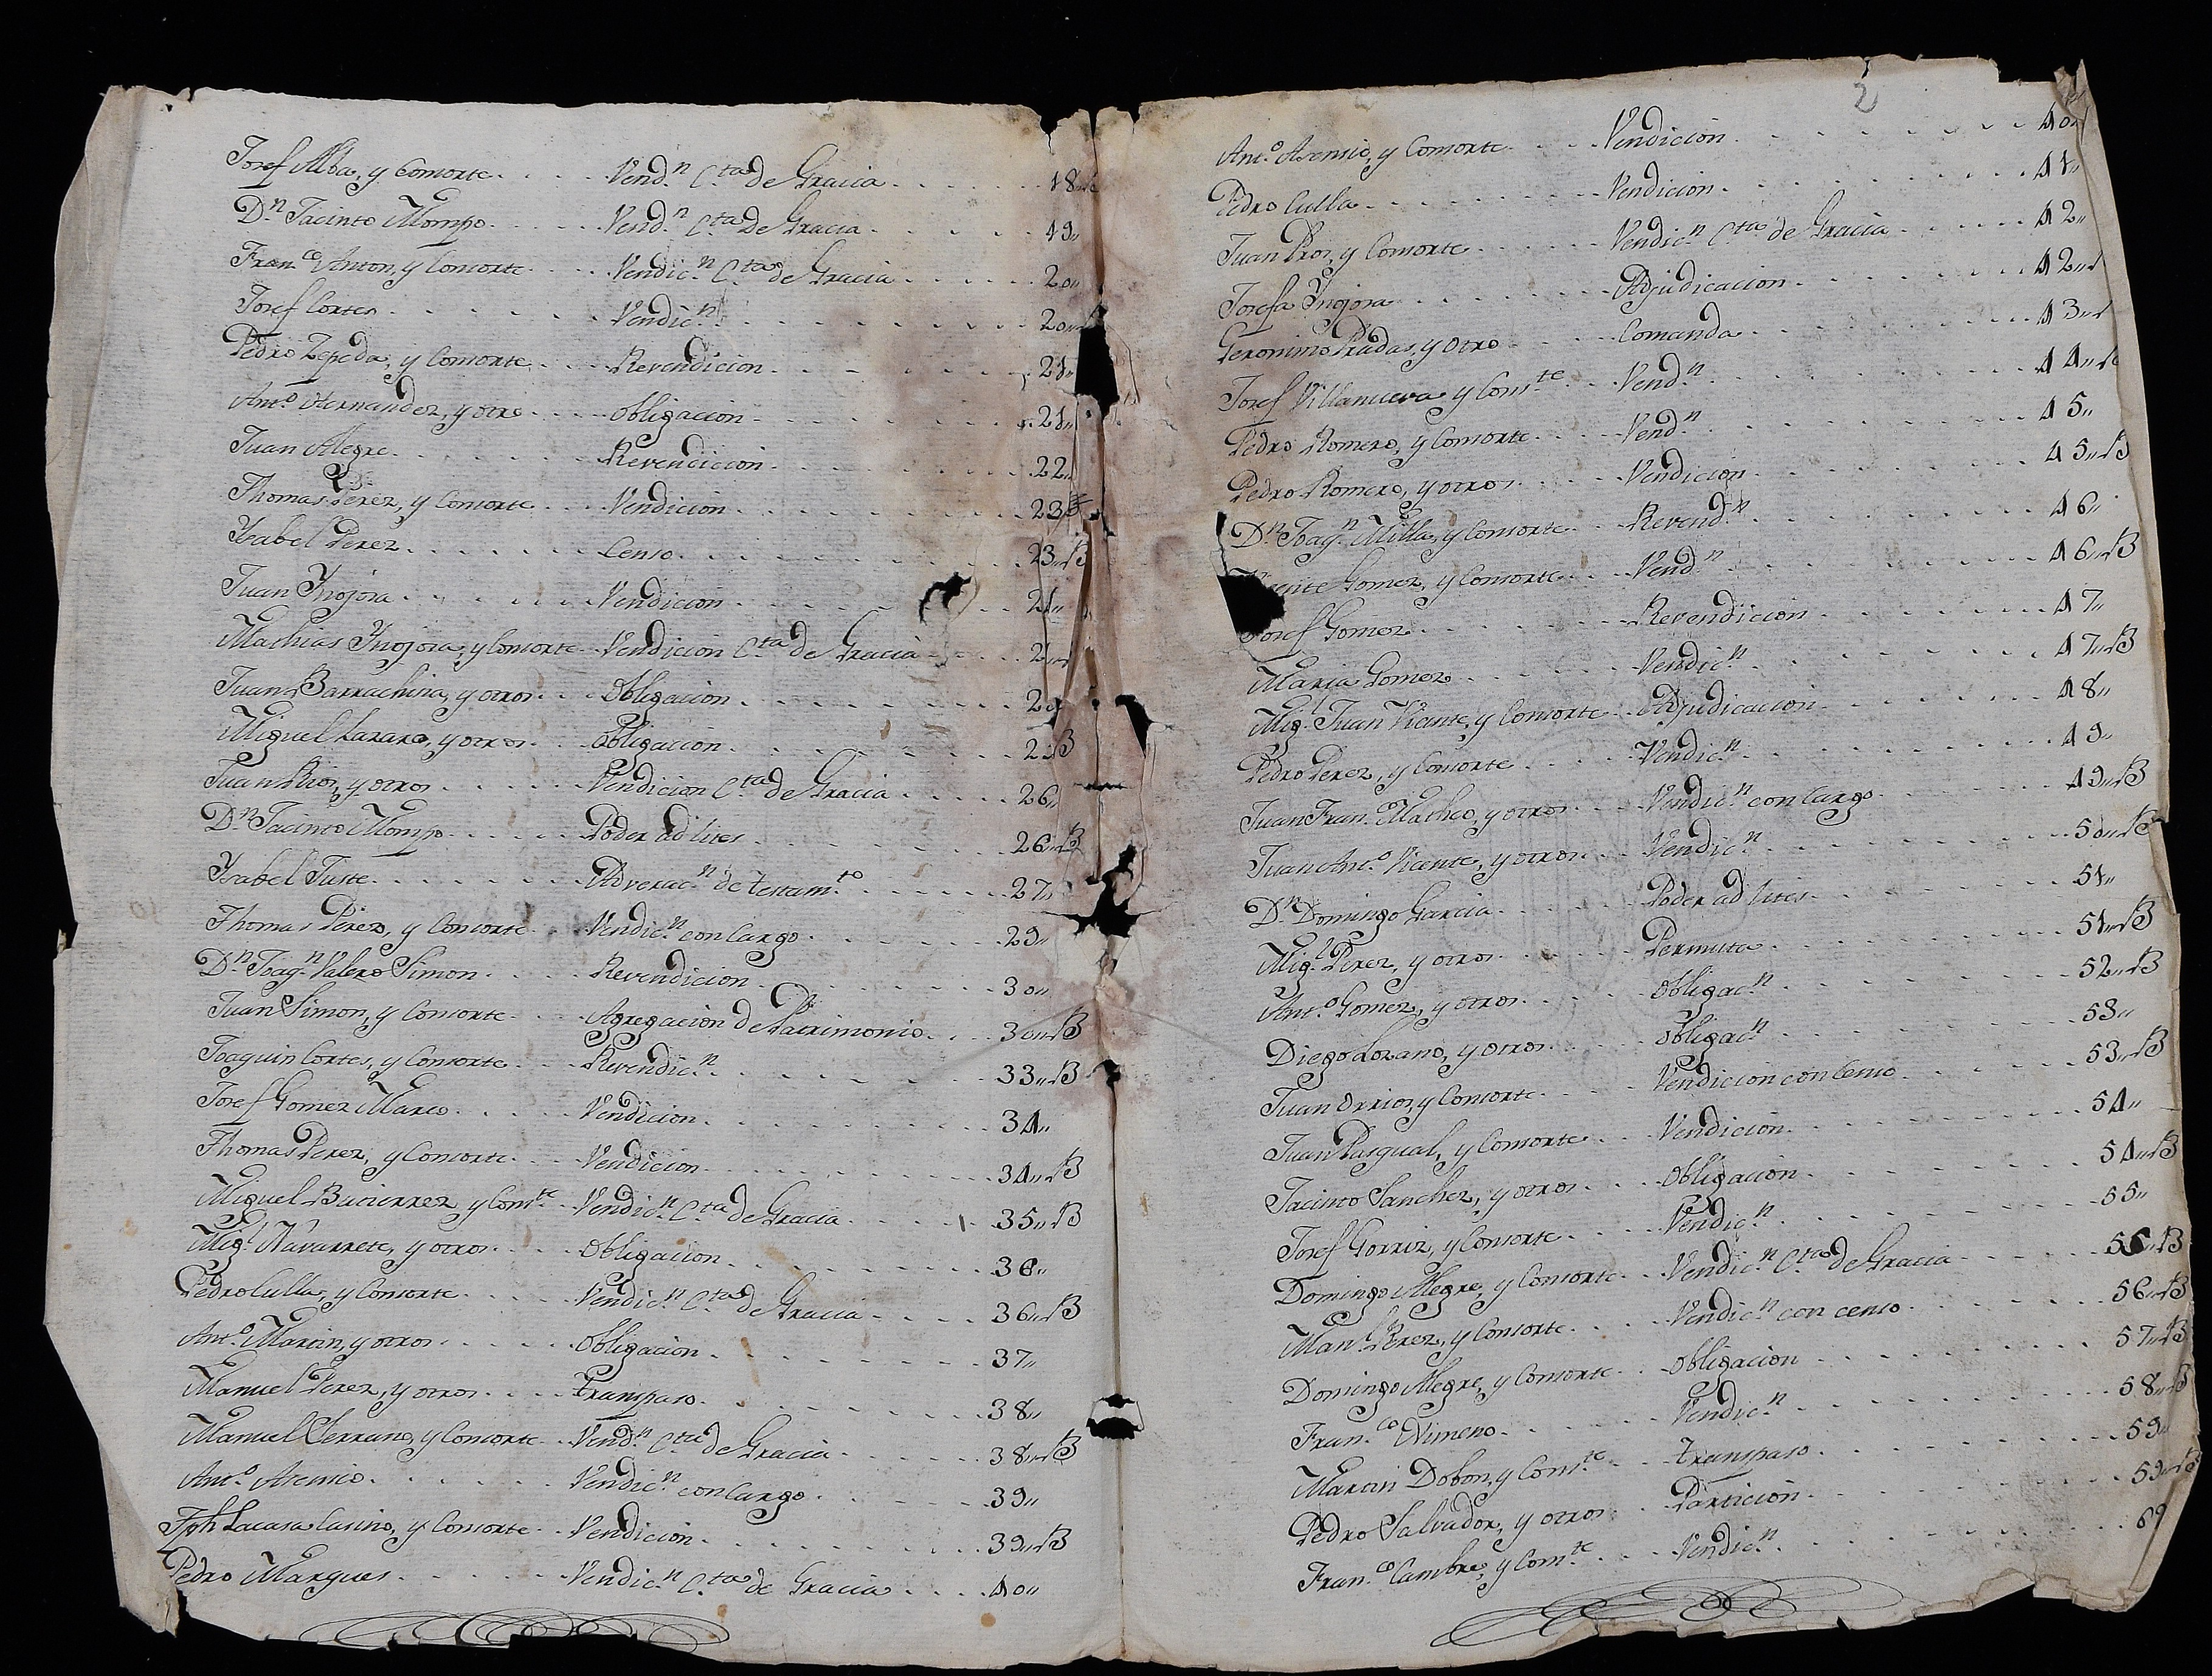 Josef Alba, y Consorte. . . . . Vend.n C.ta de Gracia . . . . . . 18
D.n Jacinto Mompo. . . . . Vend.n C.ta de Gracia . . . . . . 19„
Fran.co Anton, y Consorte. . . . Vendic.n C.ta de Gracia . . . . . . 20„
Josef Cortes . . . . . . Vendic.n . . . . . . 20„
Pedro Zepeda, y Consorte. . . . Revendicion. . . . . . . 21„
Ant.o Hernandez, y otro . . . . Obligacion . . . . . . 21„
Juan Alegre. . . . . . Revendicion. . . . . . 22„
Thomas Perez, y Consorte . . . Vendicion . . . . . . 23
Ysabel Perez . . . . . . Censo. . . . . . . 23„B
Juan Ynojosa . . . . . . Vendicion . . . . . .
Mathias Ynojosa, y Consorte. . Vendicion C.ta de Gracia . . . .
Juan Barrachina, y otros. . . Obligacion . . . . . .
Miguel Lazaro, y otros. . . Obligacion. . . . . .
Juan Rios, y otros . . . . . Vendicion C.ta de Gracia . . . . . 26„
D.n Jacinto Mompo. . . . . . Poder ad lites. . . . . . 26„B
Ysabel Juste. . . . . . . Adverac.n de testam.to . . . . . . 27„
Thomas Perez, y Consorte . . Vendic.n con Cargo. . . . . . 29„
D.n Joaq.n Valero Simon. . . . . Revendicion . . . . . . 30„
Juan Simon, y Consorte . . . . Agregacion de Patrimonio. . . . 30„B
Joaquin Cortes, y Consorte . . . Revendic.n . . . . . . 33„B
Josef Gomez Marco . . . . . Vendicion. . . . . . 34„
Thomas Perez, y Consorte. . . Vendicion. . . . . . 34„B
Miguel Butierrez y Cons.te . . Vendic.n C.ta de Gracia. . . . . 35„B
Mig.l Navarrete, y otros. . . . Obligacion . . . . . . 36„
Pedro Culla, y Consorte . . . . Vendic.n C.ta de Gracia . . . . 36„B
Ant.o Martin, y otros . . . . . Obligacion. . . . . . 37„
Manuel Perez, y otros . . . . transpaso. . . . . . 38„
Manuel Serrano, y Consorte . . Vend.n C.ta de Gracia . . . . . 38„B
Ant.o Asensio. . . . . . Vendic.n con Cargo . . . . . 39„
Jph Lacasa Casino, y Consorte. . Vendicion. . . . . . 39„B
Pedro Marques . . . . . . Vendic.n C.ta de Gracia . . . . 40„
2
Ant.o Asensio, y Consorte. . . . Vendicion. . . . . . 40„
Pedro Culla . . . . . . Vendicion. . . . . . 41„
Juan Pros, y Consorte . . . . . Vendic.n C.ta de Gracia . . . . . 42„
Josefa Ynojosa . . . . . . Adjudicacion. . . . . . 42„
Geronimo Pradas, y otro . . . . Comanda . . . . . . 43„
Josef Villanueva y Cons.te . . Vend.n . . . . . . 44„
Pedro Romero, y Consorte. . . . Vend.n . . . . . . 45„
Pedro Romero, y otros. . . . Vendicion. . . . . . 45„B
D.n Joaq.n Milla, y Consorte. . . Revend.n . . . . . . 46„
Gomez, y Consorte . . . Vend.n . . . . . . 46„B
Josef Gomez. . . . . . Revendicion . . . . . . 47„
Maria Gomez . . . . . . Vendic.n . . . . . . 47„B
Mig.l Juan Vicente, y Consorte . . Adjudicacion . . . . . . 48„
Pedro Perez, y Consorte . . . . Vendic.n . . . . . . 49„
Juan Fran.co Matheo, y otros. . . Vendic.n con Cargo. . . . . . 49„B
Juan Ant.o Vicente, y otros. . . Vendic.n . . . . . . 50„B
D.n Domingo Garcia. . . . . . Poder ad lites. . . . . . 51„
Mig.l Perez, y otros. . . . . Permuta . . . . . . 51„B
Ant.o Gomez, y otros. . . . . Obligac.n . . . . . . 52„B
Diego Lozano, y otros. . . . . Obligac.n . . . . . . 53„
Juan Orrios, y Consorte. . . . Vendicion con Censo . . . . . 53„B
Juan Pasqual, y Consorte . . . Vendicion. . . . . . 54„
Jacinto Sanchez, y otros . . . Obligacion. . . . . . 54„B
Josef Gorriz, y Consorte. . . . Vendic.n . . . . . . 55„
Domingo Alegre, y Consorte. . Vendic.n C.ta de Gracia . . . . . 56„B
Man.l Perez, y Consorte. . . . Vendic.n con censo. . . . . . 56„B
Domingo Alegre, y Consorte. . Obligacion . . . . . . 57„B
Fran.co Ximeno. . . . . . Vendic.n . . . . . . 58„B
Martin Dobon, y Cons.te . . . transpaso. . . . . . 59„
Pedro Salvador, y otros . . . Particion. . . . . . 59„B
Fran.co Cambre, y Cons.te . . . Vendic.n . . . . . .